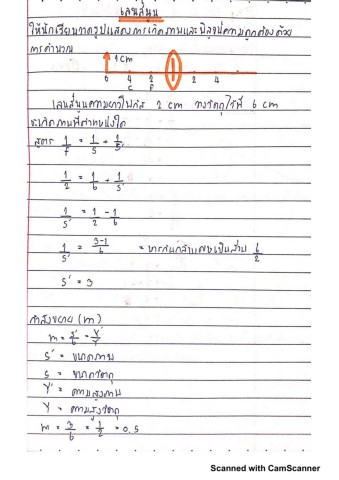 เลนส์นูน
ให้นักเรียนวาดรูปแสดงการเกิดภาพและพิสูจน์ความถูกต้องด้วย
การคำนวณ
1 cm
6 4 2 2 4
C F
เลนส์นูนความยาวโฟกัส 2 cm วางวัตถุไว้ที่ 6 cm
จะเกิดภาพที่ตำแหน่งใด
สูตร 1/f = 1/s + 1/s'
1/2 = 1/6 + 1/s'
1/s' = 1/2 - 1/6
1/s' = 3-1/6 = 6/2
s' = 3
กำลังขยาย (m)
m = s'/s = Y'/Y
s' = ขนาดภาพ
s = ขนาดวัตถุ
Y' = ความสูงภาพ
Y = ความสูงวัตถุ
m = 3/6 = 1/2 = 0.5
Scanned with CamScanner